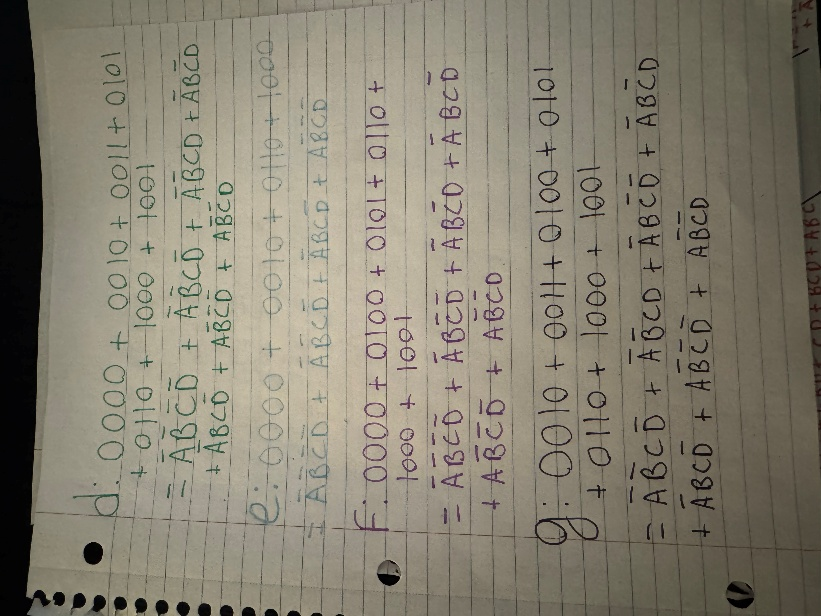 d: 0000 + 0010 + 0011 + 0101
+ 0110 + 1000 + 1001
= A̅B̅C̅D̅ + A̅B̅CD̅ + A̅B̅CD + A̅BC̅D
+ A̅BCD̅ + AB̅C̅D̅ + AB̅C̅D
e: 0000 + 0010 + 0110 + 1000
= A̅B̅C̅D̅ + A̅B̅CD̅ + A̅BCD̅ + AB̅C̅D̅
f: 0000 + 0100 + 0101 + 0110 +
1000 + 1001
= A̅B̅C̅D̅ + A̅BC̅D̅ + A̅BC̅D + A̅BCD̅
+ AB̅C̅D̅ + AB̅C̅D
g: 0010 + 0011 + 0100 + 0101
+ 0110 + 1000 + 1001
= A̅B̅CD̅ + A̅B̅CD + A̅BC̅D̅ + A̅BC̅D
+ A̅BCD̅ + AB̅C̅D̅ + AB̅C̅D